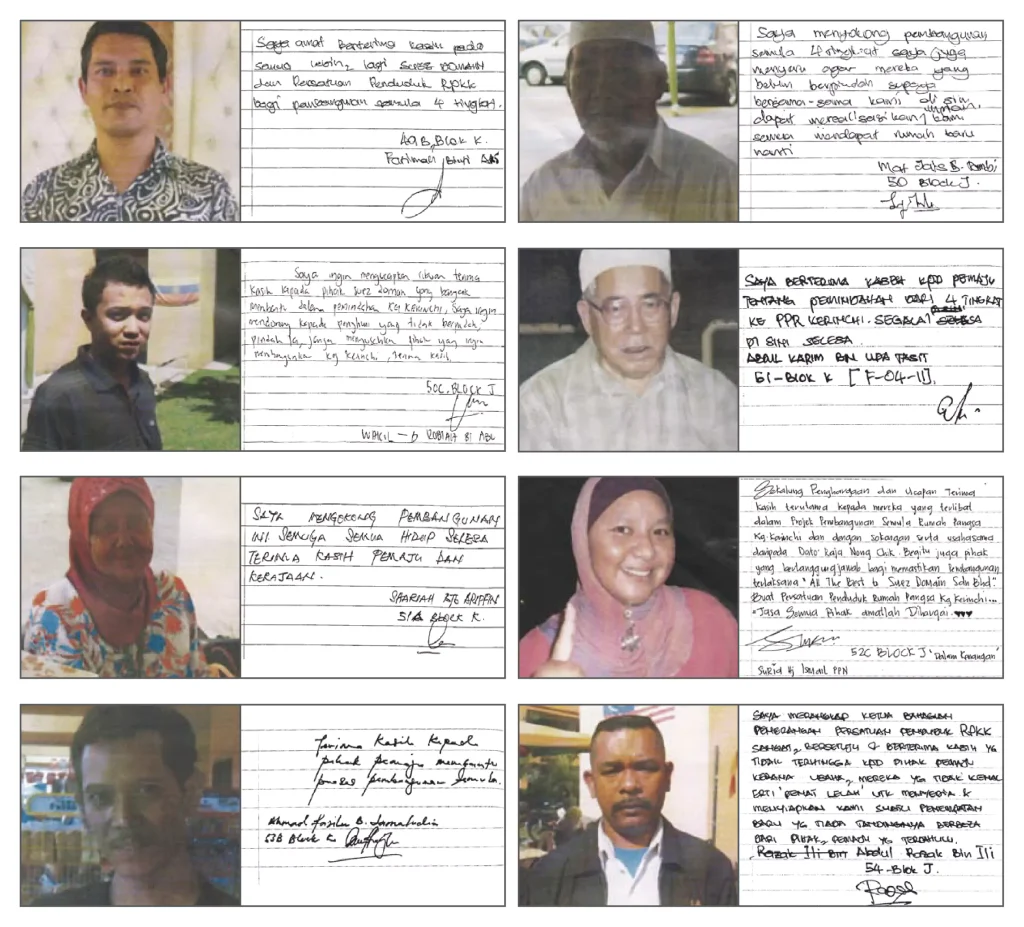 Saya amat berterima kasih pada
semua lebih, lagi SUEZ DOMAIN
dan Persatuan Penduduk RPKK
bagi pembangunan semula 4 tingkat.
49B, Block K.
Fatimah Binti
Saya menyokong pembangunan
semula 4 tingkat saya juga
menyeru agar mereka yang
belum berpindah supaya
bersama-sama kami di sini
dapat merealisasikan impian kami
semua mendapat rumah baru
nanti
Mat B.
50 Block J.
Saya ingin mengucapkan ribuan terima
kasih kepada pihak suez domain yang banyak
membantu dalam perpindahan Kg Kerinchi, saya ingin
menyeru kepada penghuni yang tidak berpindah,
pindah la, jangan menyusahkan pihak yang ingin
membangunkan kg kerinchi, terima kasih.
50C, BLOCK J
WAKIL - ROBIAH BT ABU
SAYA BERTERIMA KASEH KPD PEMAJU
TENTANG PEMINDAHAN DARI 4 TINGKAT
KE PPR KERINCHI. SEGALA
DI SINI SELESA
ABDUL KARIM BIN UDA TASIT
51-BLOK K [F-04-11].
SAYA MENYOKONG PEMBANGUNAN
INI SEMUGA SEMUA HIDUP SELESA
TERIMA KASIH PEMAJU DAN
KERAJAAN.
SAARIAH BTE ARIFFIN
51A BLOCK K.
Sekalung Penghargaan dan Ucapan Terima
Kasih terutama kepada mereka yang terlibat
dalam Projek Pembangunan Semula Rumah Pangsa
Kg. Kerinchi dan dengan sokongan serta usahasama
daripada Dato' Raja Nong Chik. Begitu juga pihak
yang bertanggungjawab bagi memastikan Pembangunan
terlaksana "All The Best to Suez Domain Sdn Bhd".
Buat Persatuan Penduduk Rumah Pangsa Kg Kerinchi...
"Jasa Semua Pihak amatlah Dihargai. ♥♥♥
52C BLOCK J 'Dalam Kenangan'
Suria Hj Ismail PPN
Terima Kasih Kepada
pihak pemaju membantu
proses pembangunan semula.
Ahmad Fasilu B. Jamaludin
53B Block K
SAYA MERANGKAP KETUA BAHAGIAN
PENERANGAN PERSATUAN PENDUDUK RPKK
SANGAT2 BERSETUJU & BERTERIMA KASIH YG
TIDAK TERHINGGA KPD PIHAK PEMAJU
KERANA USAHA2 MEREKA YG TIDAK KENAL
ERTI 'PENAT LELAH' UTK MENYEDIA &
MENYIAPKAN KAMI SUATU PENEMPATAN
BARU YG TIADA TANDINGANYA BERBEZA
DARI PIHAK2 PEMAJU YG TERDAHULU.
Razak Ili Bin Abdul Razak Bin Ili
54-Blok J.